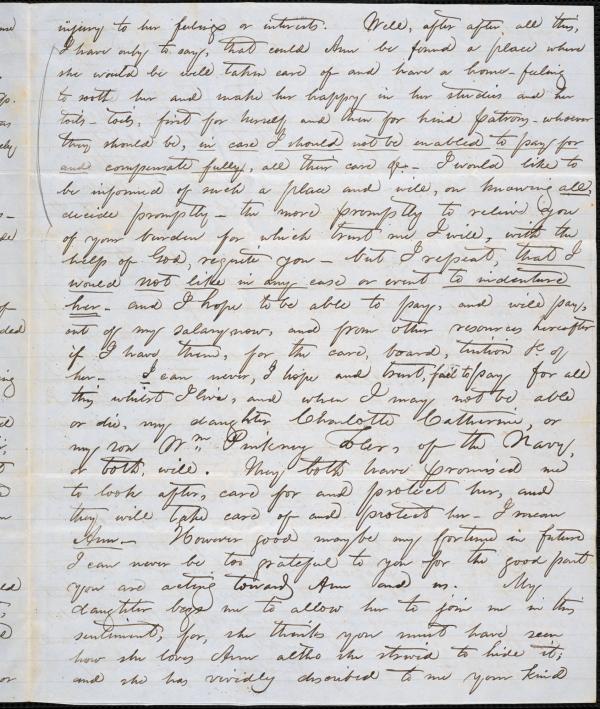 injury to her feelings or interests. Well, after after, all this,
I have only to say, that could Ann be found a place where
she would be well taken care of and have a home-feeling
to sooth her and make her happy in her studies and her
toils - toils, first for herself and then for kind Patrons - whoever
they should be, in case I should not be enabled to pay for
and compensate fully, all their care &c - I would like to
be informed of such a place and will, on knowing all,
decide promptly - the more promptly to relieve you
of your burden for which trust me I will, with the
help of God, requite you - but I repeat, that I
would not like in any case or event to indenture
her - and I hope to be able to pay, and will pay,
out of my salary now, and from other resources hereafter
if I have them, for the care, board, tuition &c of
her - I can never, I hope and trust, fail to pay for all
this whilst I live, and when I may not be able
or die, my daughter Charlotte Catherine, or
my son Wm Pinkney, of the Navy,
or both, will. They both have promised me
to look after, care for and protect her, and
they will take care of and protect her - I mean
Ann. - However good may be my fortune in future
I can never be too grateful to you for the good part
you are acting toward Ann and us. My
daughter begs me to allow her to join me in this
sentiment, for, she thinks you must have seen
how she loves Ann altho she strived to hide it;
and she has vividly described to me your kind